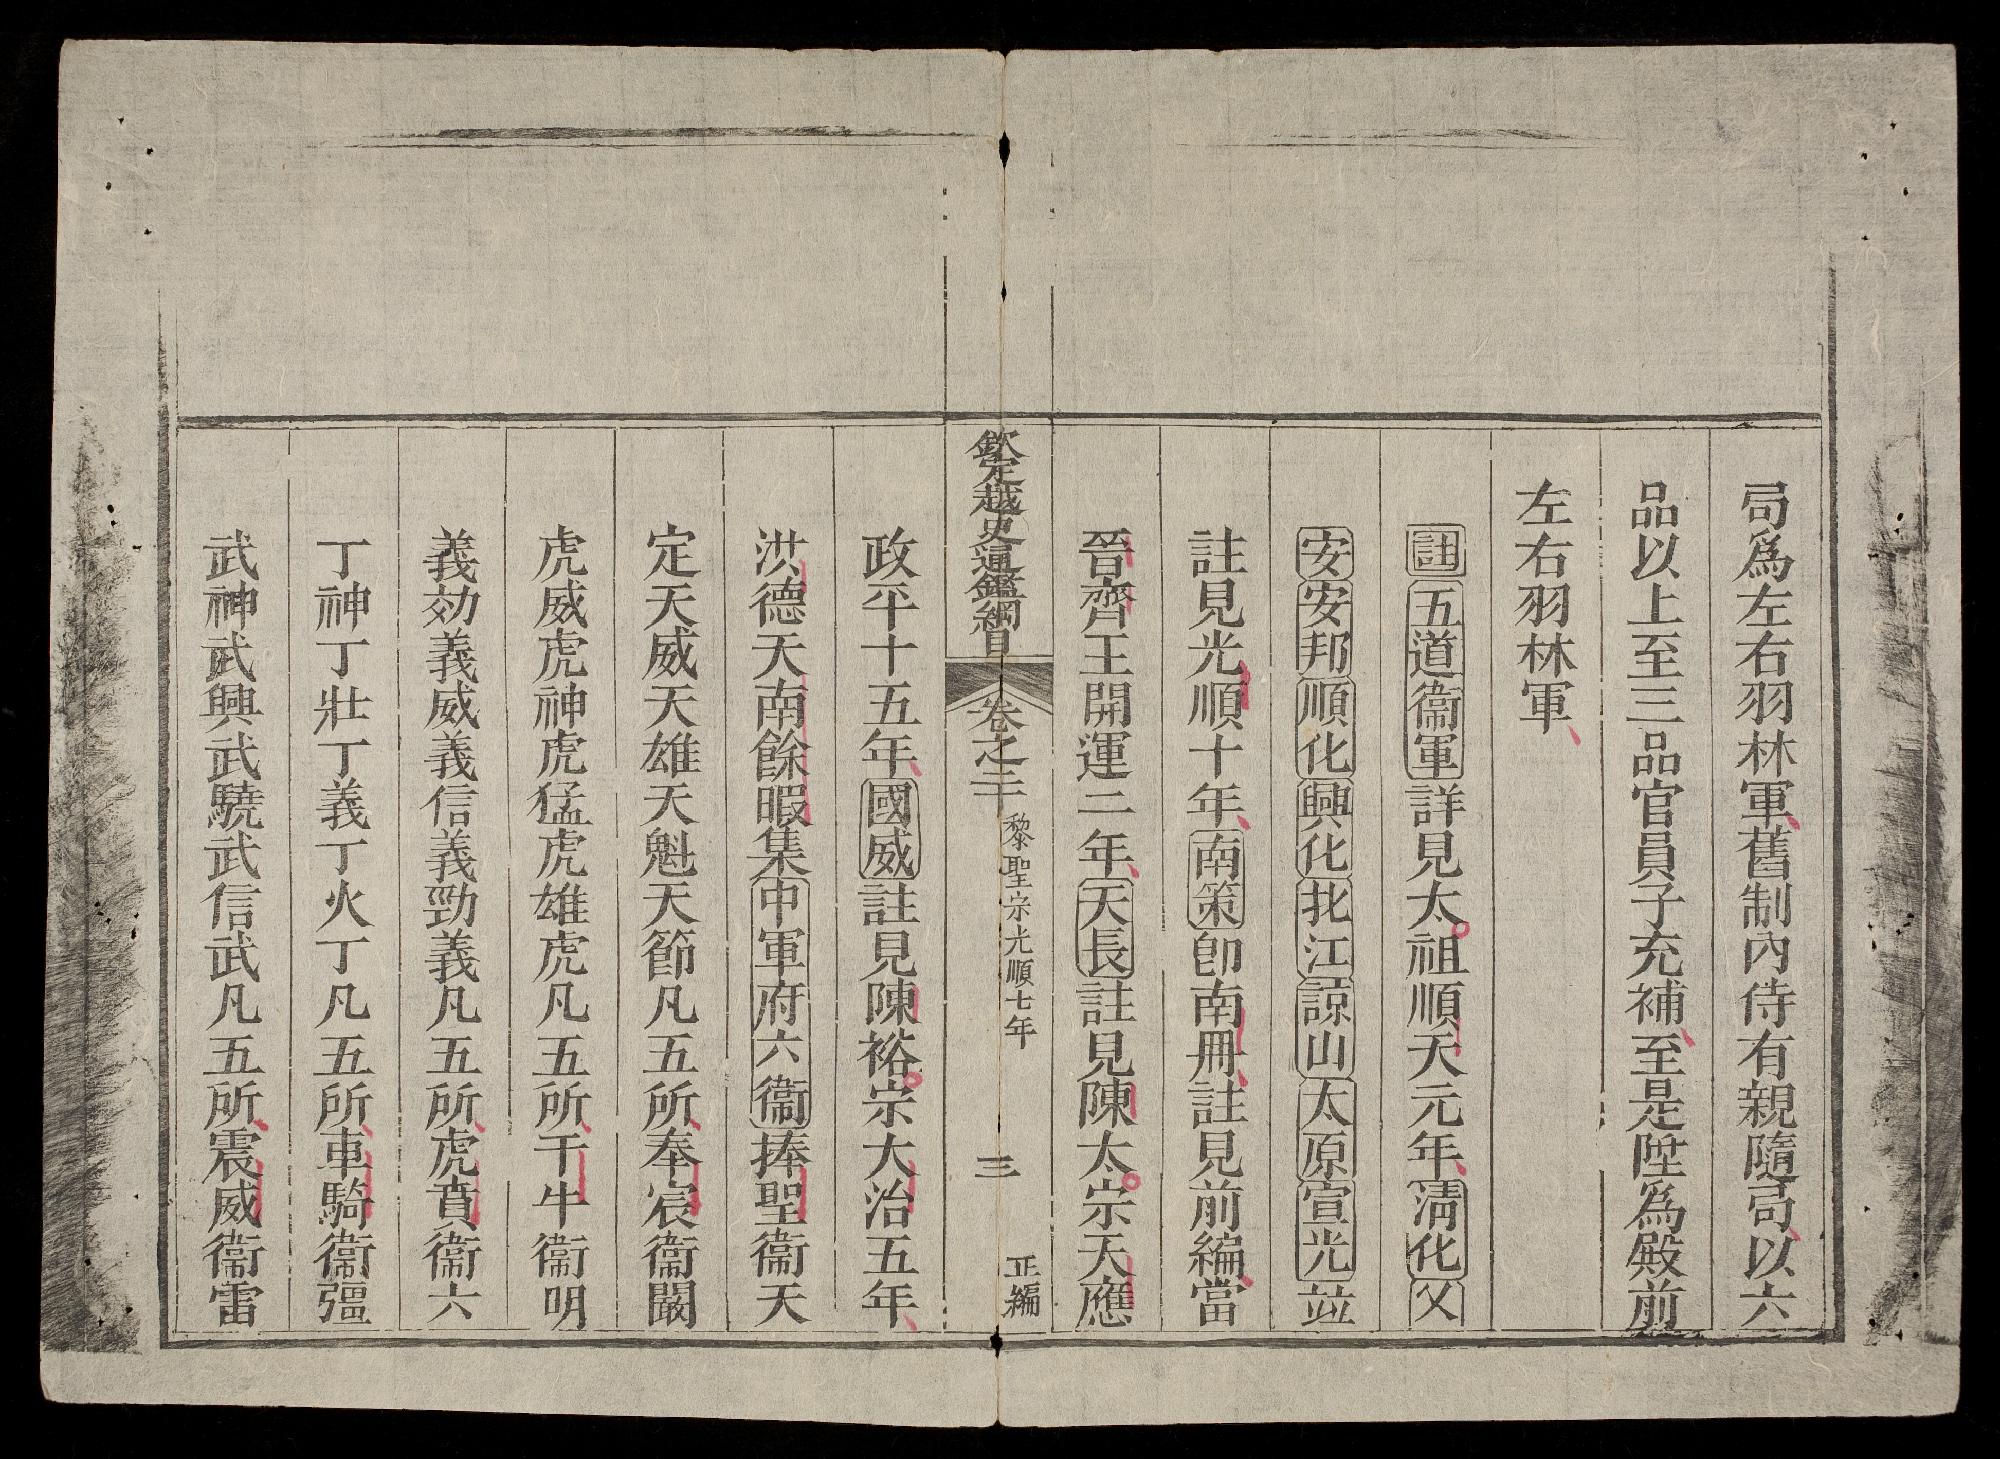 局爲左右羽林軍、舊制內侍有親隨局、以六
品以上至三品官員子充補、至是陞爲殿前
左右羽林軍、
註五道衞軍詳見太祖順天元年、淸化乂
安安邦順化興化北江諒山太原宣光並
註見光順十年、南策卽南冊、註見前編、當
晉齊王開運二年、天長註見陳太宗天應
欽定越史通鑑綱目 卷之二十 黎聖宗光順七年 三 正編
政平十五年、國威註見陳裕宗大治五年、
洪德天南餘暇集中軍府六衞捧聖衞天
定天威天雄天魁天節凡五所、奉宸衞闞
虎威虎神虎猛虎雄虎凡五所、千牛衞明
義効義威義信義勁義凡五所、虎賁衞六
丁神丁壯丁義丁火丁凡五所、車騎衞彊
武神武興武驍武信武凡五所、震威衞雷